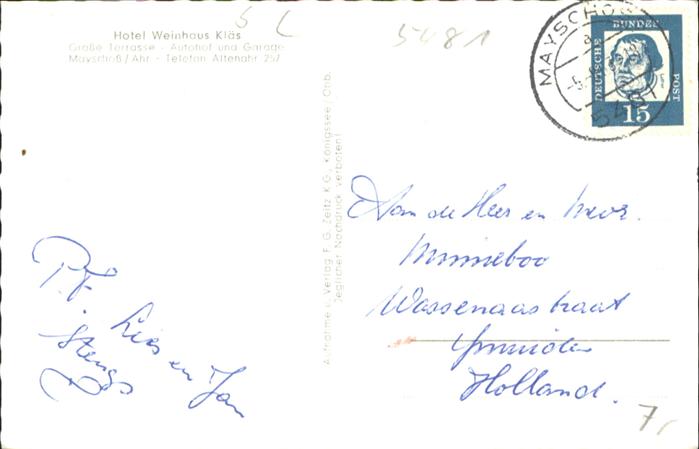 Hotel Weinhaus Kläs
Große Terrasse - Autohof und Garage
Mayschoß / Ahr - Telefon Altenahr 257
5481
MAYSCHOSS
5481
DEUTSCHE BUNDES POST
15
Aufnahme u. Verlag F. G. Zeitz K.G., Königssee / Obb.
Jeglicher Nachdruck verboten!
Aan de Heer en Mevr.
Minneboo
Wassenaarstraat
IJmuiden
Holland.
P.F.
Lies en Jan
Stengs
7,